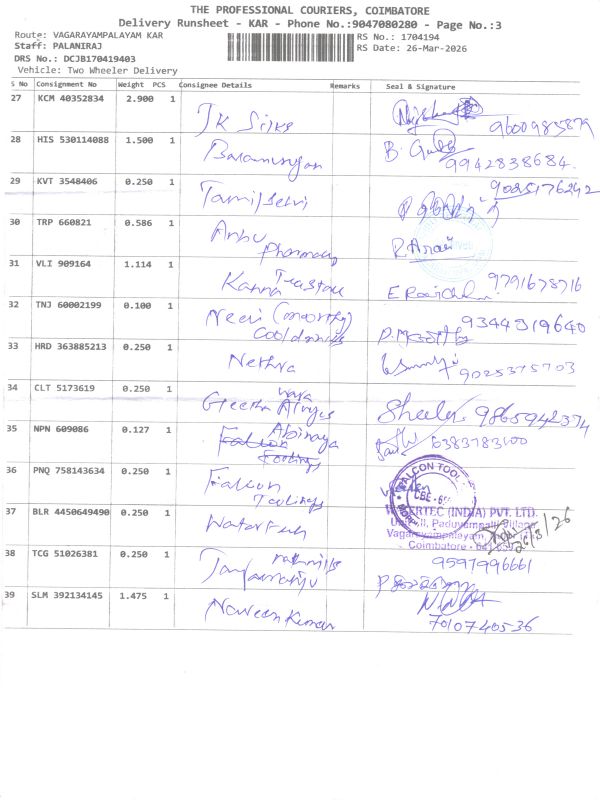 THE PROFESSIONAL COURIERS, COIMBATORE
Delivery Runsheet - KAR - Phone No.:9047080280 - Page No.:3
Route: VAGARAYAMPALAYAM KAR
Staff: PALANIRAJ
DRS No.: DCJB170419403
Vehicle: Two Wheeler Delivery
RS No.: 1704194
RS Date: 26-Mar-2026
S No Consignment No Weight PCS Consignee Details Remarks Seal & Signature
27 KCM 40352834 2.900 1 JK Silks
28 HIS 530114088 1.500 1 B. 9942838684
29 KVT 3548406 0.250 1 Tamilselvi 9025176242
30 TRP 660821 0.586 1 Anbu Pharmacy R.
31 VLI 909164 1.114 1 Kanna 9791678716
32 TNJ 60002199 0.100 1 Cooldrinks 9344519640
33 HRD 363885213 0.250 1 Nethra 9025375703
34 CLT 5173619 0.250 1 Geetha Sheela 9865942374
35 NPN 609086 0.127 1 Abinaya 6383783100
36 PNQ 758143634 0.250 1 Falcon Toolings FALCON TOOL
37 BLR 4450649490 0.250 1 (INDIA) PVT. LTD.
Vagarayampalayam,
Coimbatore
26/3/26
38 TCG 51026381 0.250 1 9597996661
39 SLM 392134145 1.475 1 Naveen Kumar 7010740536